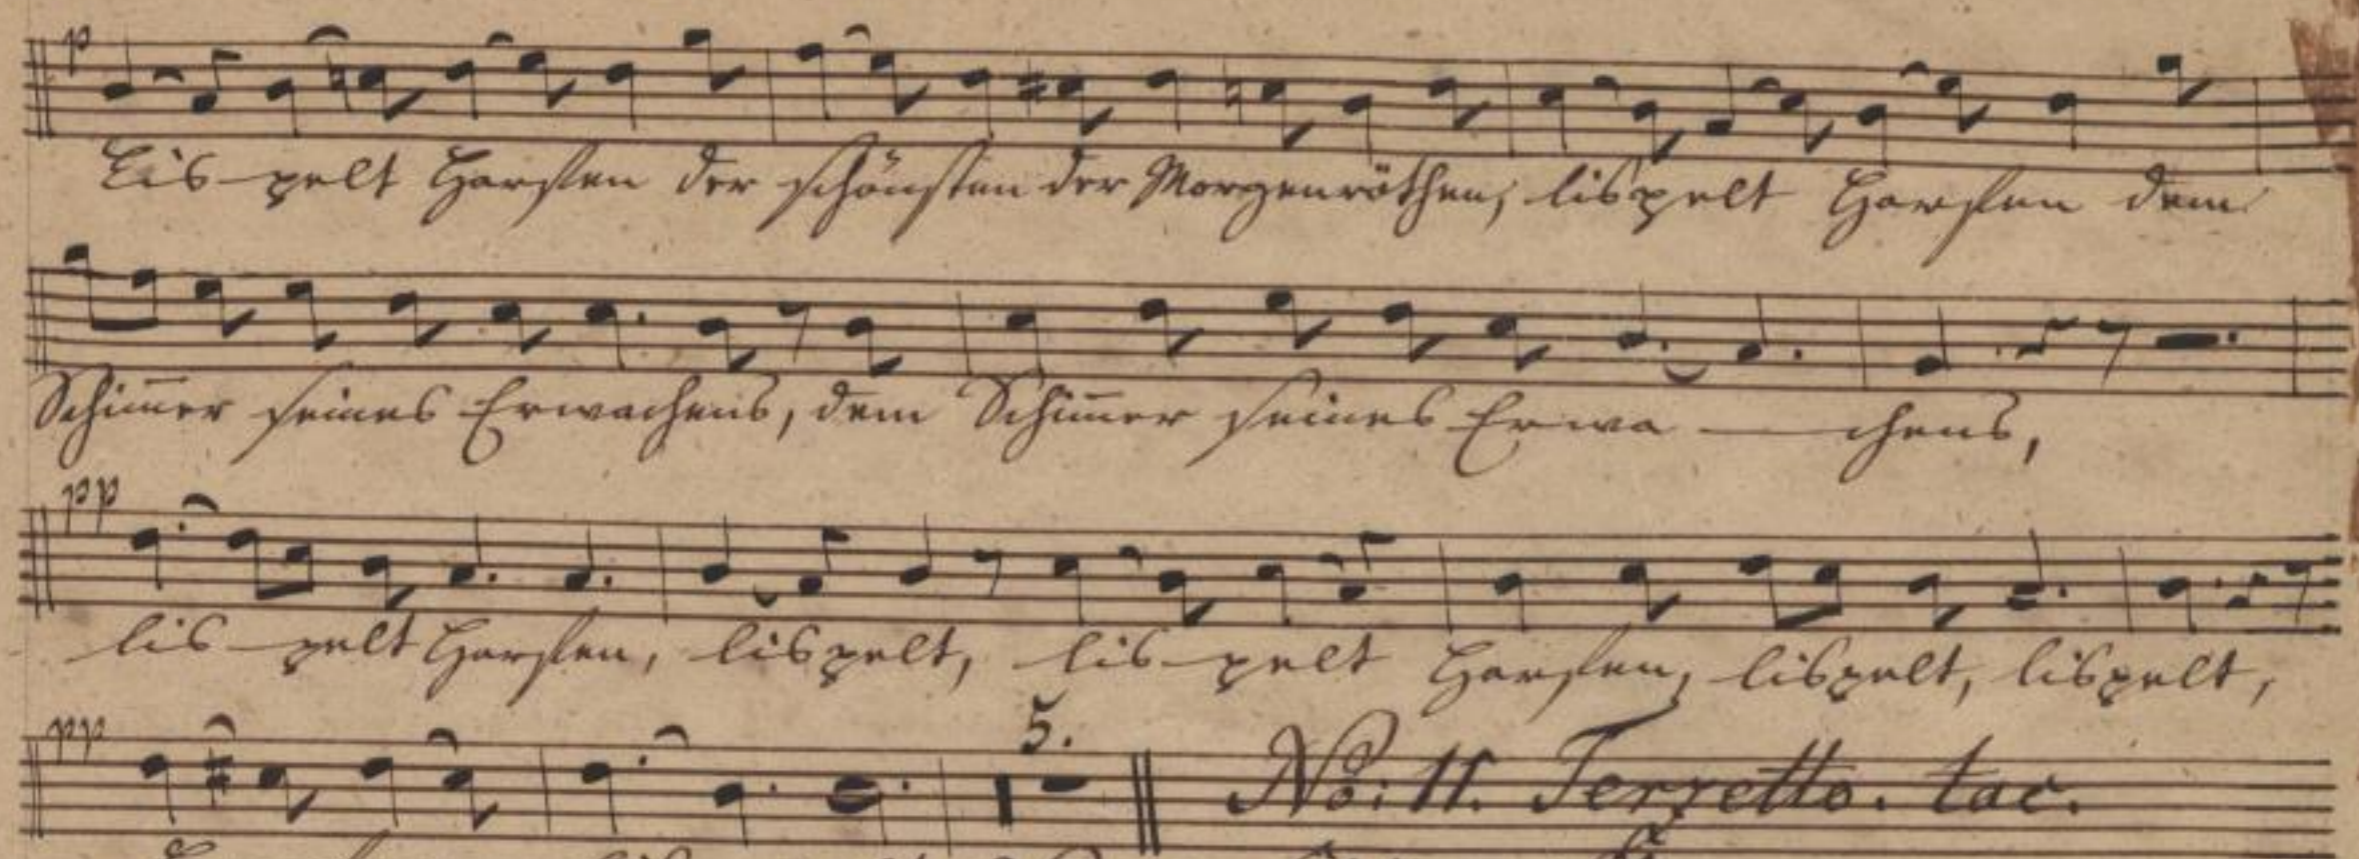 p
Lis-pelt Harfen der schönsten der Morgenröthen, lispelt Harfen dem
Schim̅er seines Erwachens, dem Schim̅er seines Erwa - chens,
pp
lis-pelt Harfen, lispelt, lis-pelt Harfen, lispelt, lispelt,
ppp
5.
No: 11. Terzetto. tac.